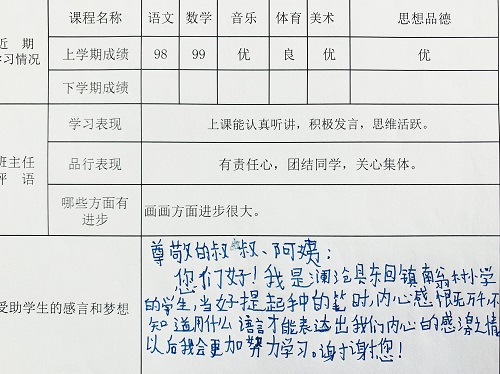 课程名称 语文 数学 音乐 体育 美术 思想品德
近 期
学习情况
上学期成绩 98 99 优 良 优 优
下学期成绩
班主任
评 语
学习表现 上课能认真听讲，积极发言，思维活跃。
品行表现 有责任心，团结同学，关心集体。
哪些方面有
进步
画画方面进步很大。
受助学生的感言和梦想
尊敬的叔叔、阿姨：
您们好！我是澜沧县东回镇南翁村小学
的学生，当好提起手中的笔时，内心感 万千，不
知道用什么语言才能表达出我们内心的感激之情
以后我会更加努力学习。谢谢您！